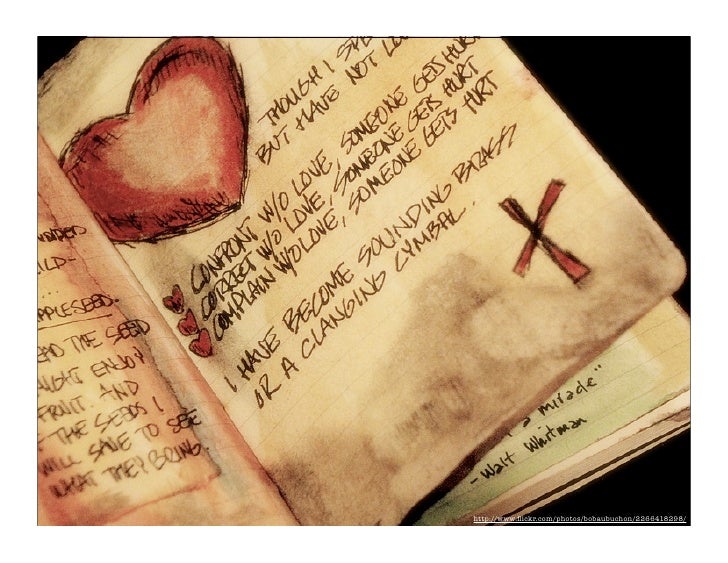 THOUGH I SPE
BUT HAVE NOT LOV
CONFRONT W/O LOVE, SOMEONE GETS HURT
CORRECT W/O LOVE, SOMEONE GETS HURT
COMPLAIN W/O LOVE, SOMEONE GETS HURT
I HAVE BECOME SOUNDING BRASS
OR A CLANGING CYMBAL.
ILD-
...
PPLESEED.
EAD THE SEED
IGHT ENJOY
FRUIT. AND
F THE SEEDS I
WILL SAVE TO SEE
WHAT THEY BRING.
a miracle"
-Walt Whitman
http://www.flickr.com/photos/bobaubuchon/2266418298/